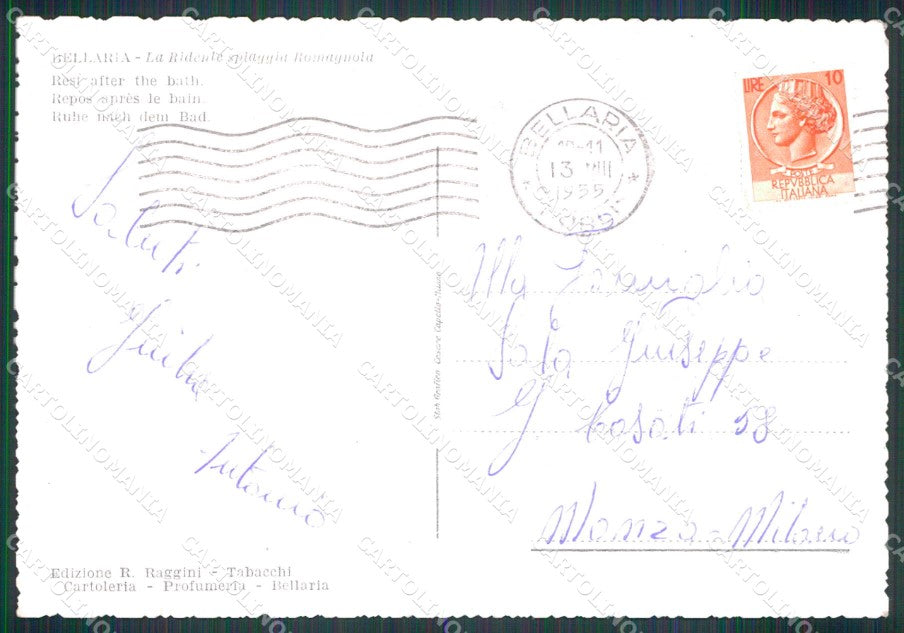 BELLARIA - La Ridente spiaggia Romagnola
Rest after the bath.
Repos après le bain.
Ruhe nach dem Bad.
BELLARIA
13 VIII
1955
LIRE 10
POSTE
REPVBBLICA
ITALIANA
Saluti
Antonio
Alla Famiglia
Sala Giuseppe
Casati 58
Monza - Milano
Edizione R. Raggini - Tabacchi
Cartoleria - Profumeria - Bellaria
CARTOLINOMANIA